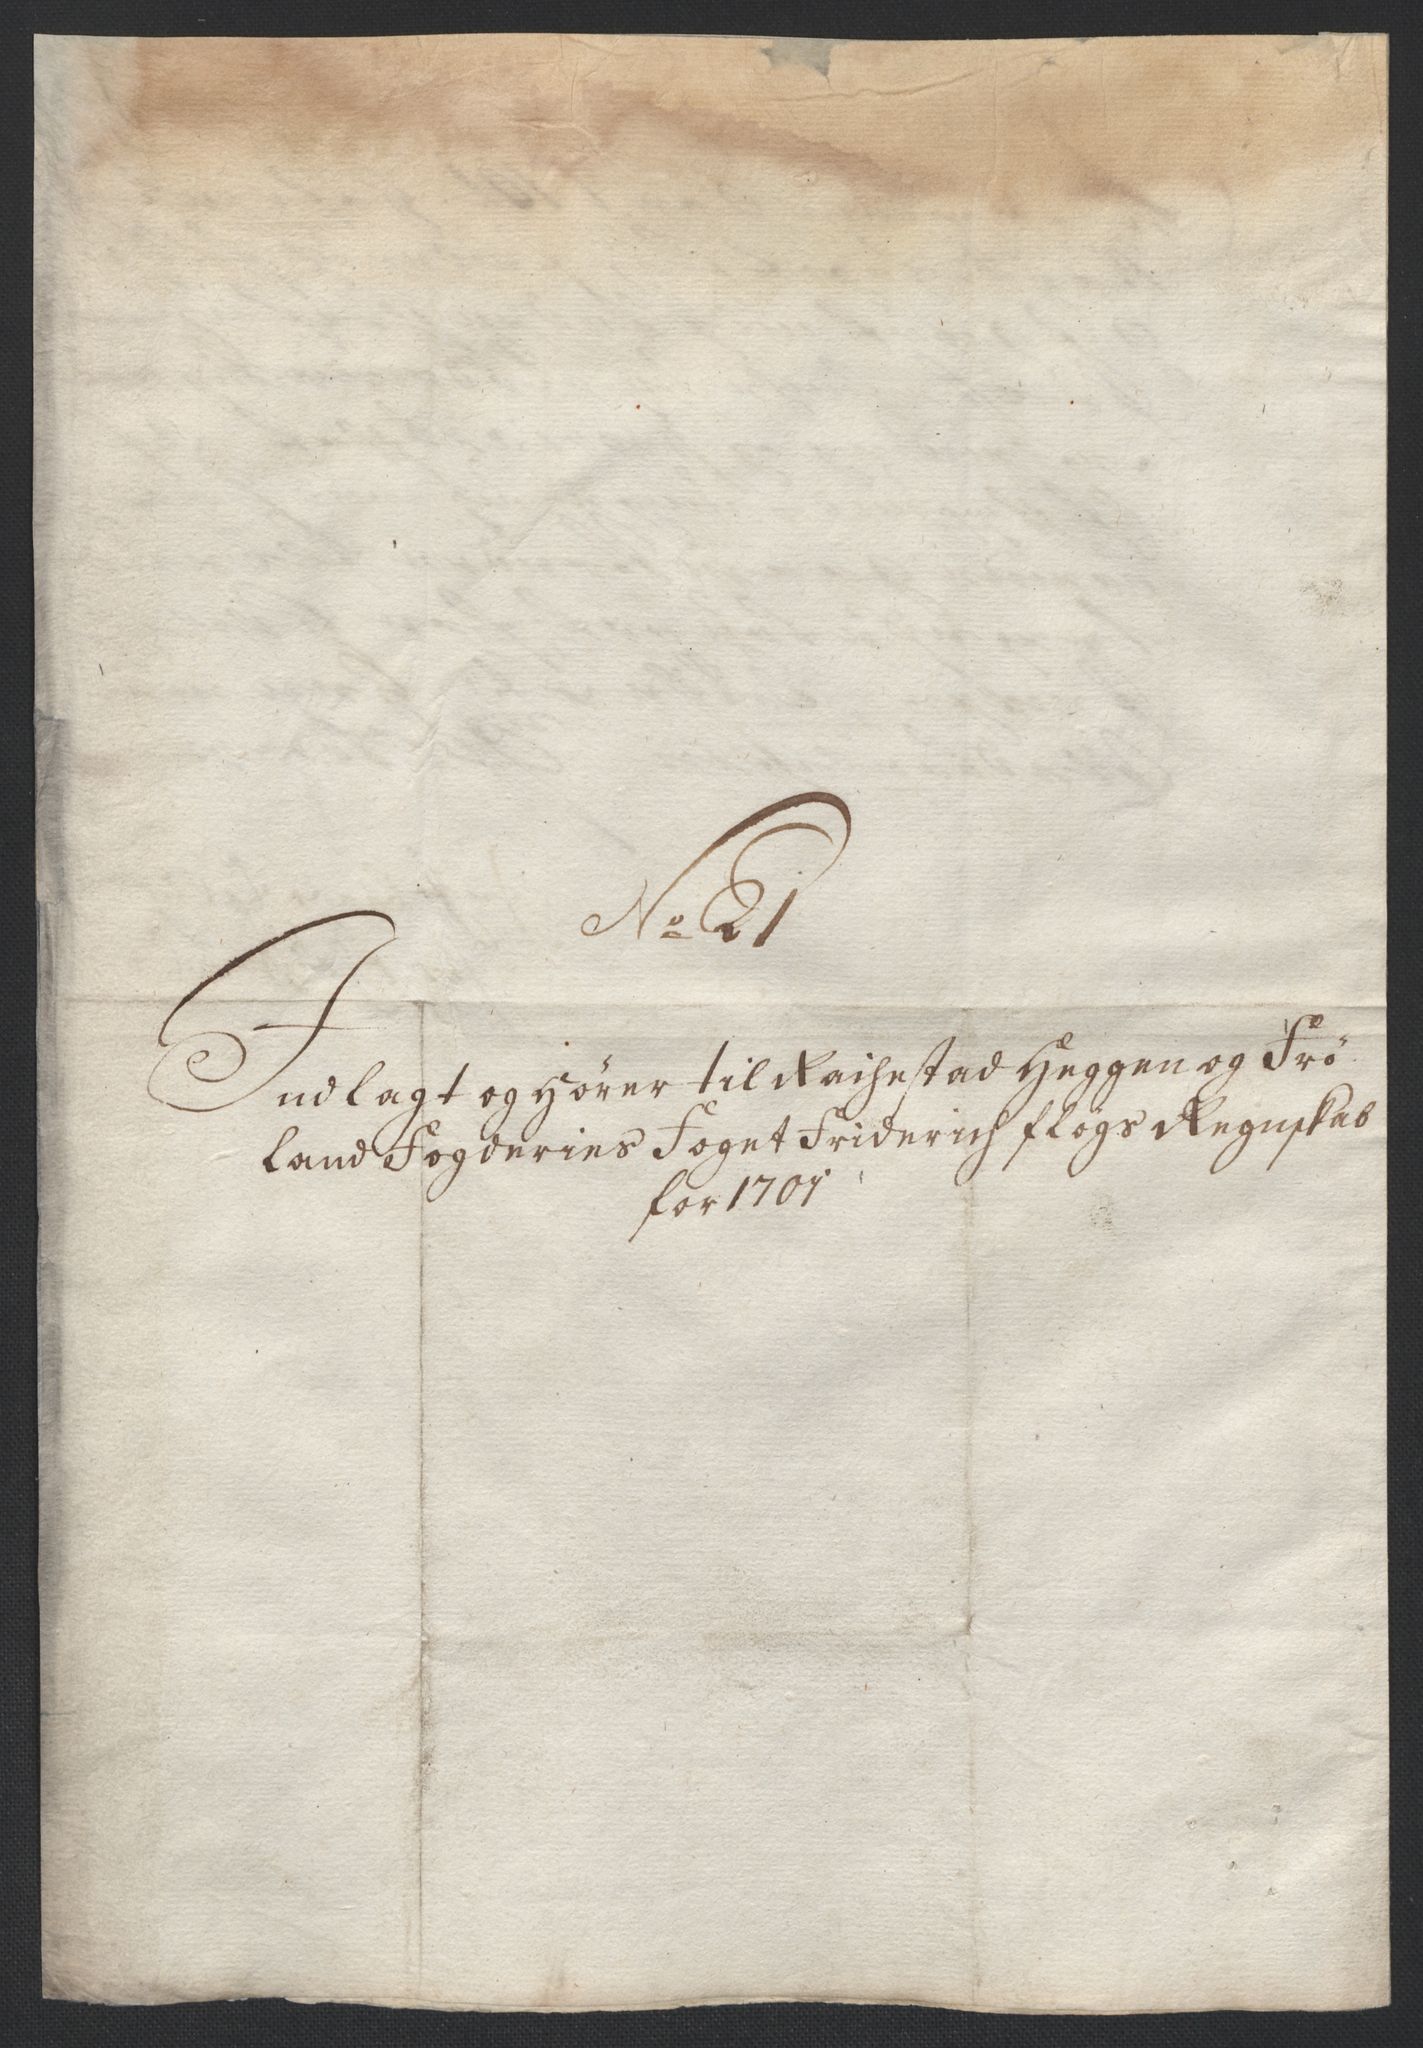 No 21
Indlagt og hörer til Rachestad Heggen og Frö
land Fogderies Foget Friderich flögs Regnskab
for 1701